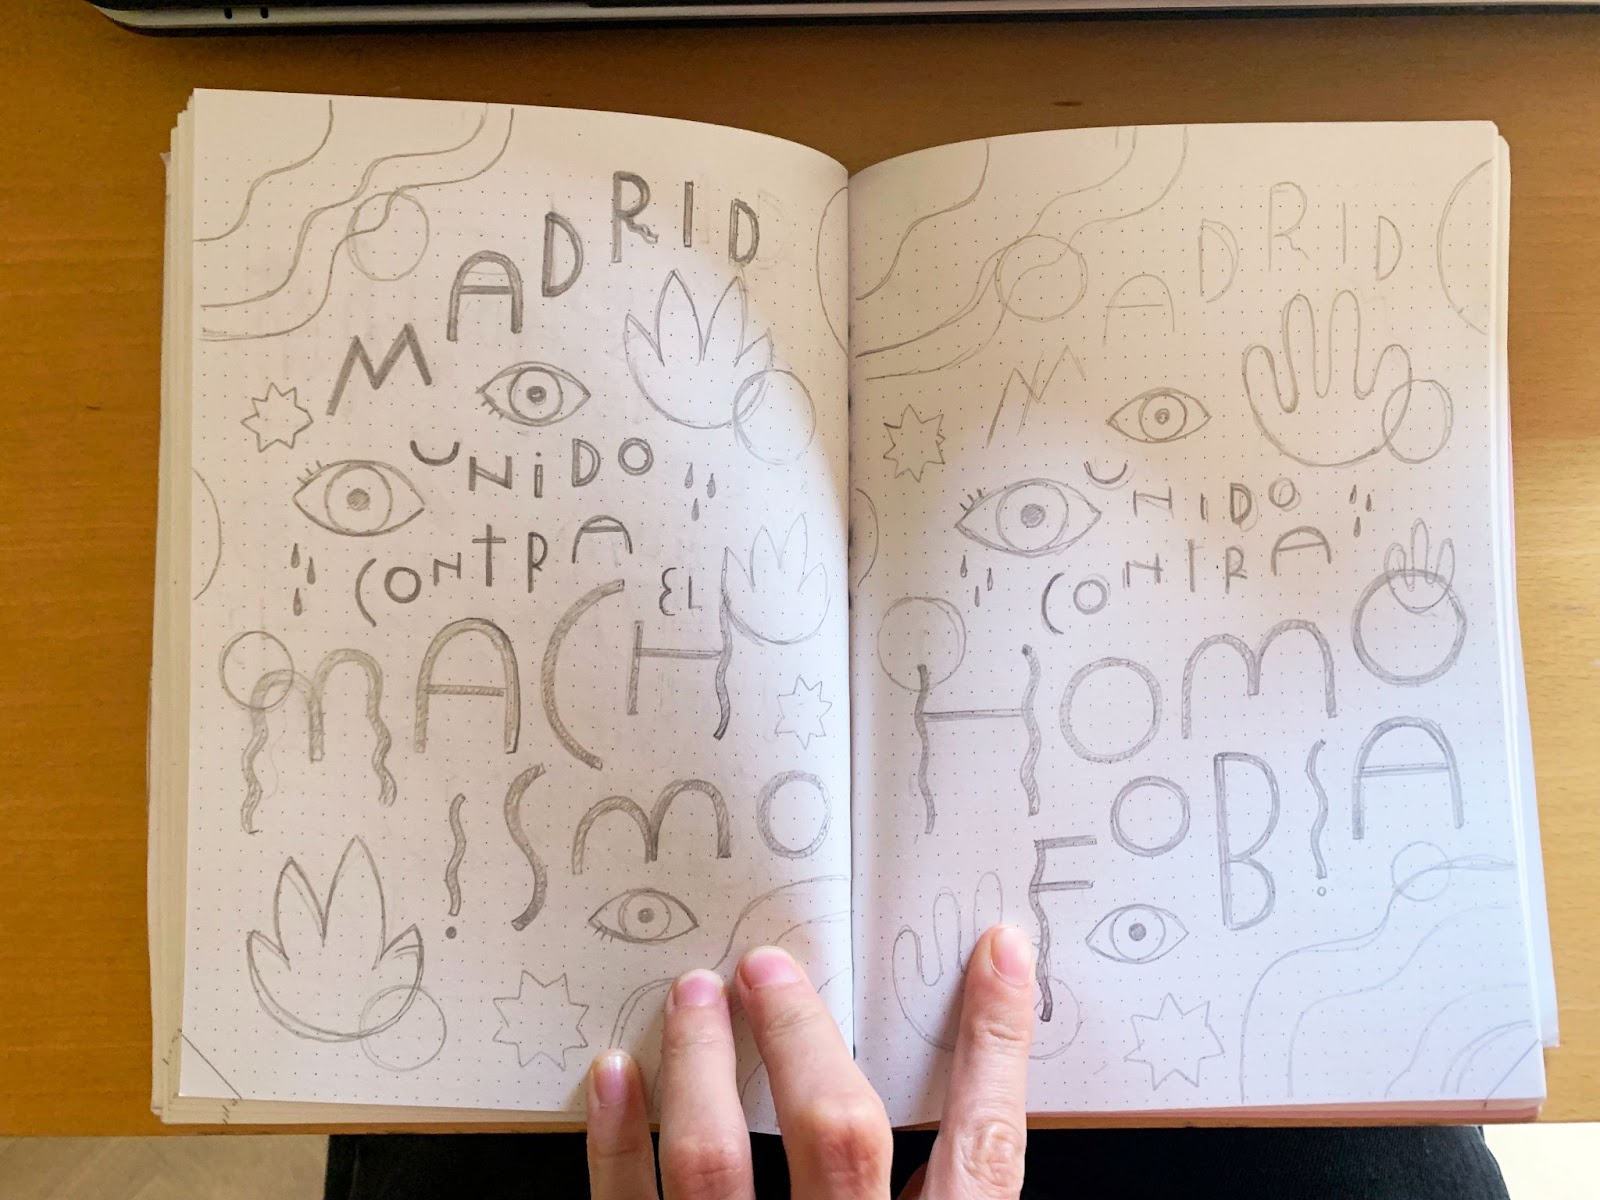 MADRID
UNiDO
CONTRA
EL
MACH
iSMO
MADRID
UNIDO
CONTRA
HOMO
FOBiA